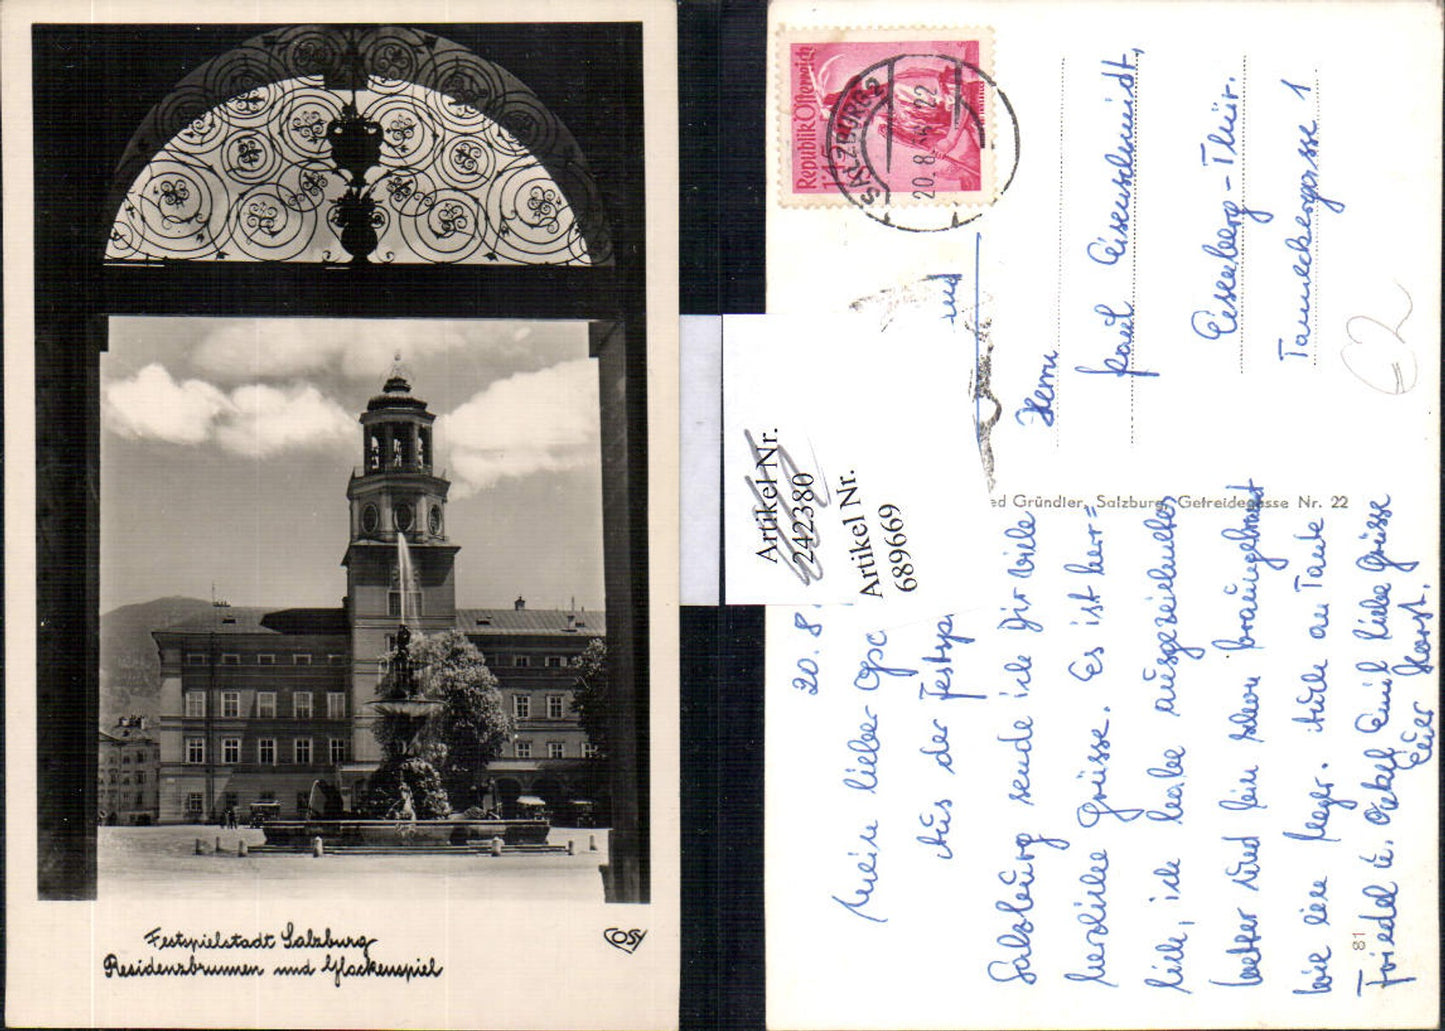 Festspielstadt Salzburg
Residenzbrunnen und Glockenspiel
COSY
Republik Österreich
SALZBURG 2
20.8.
22
Artikel Nr.
242380
Artikel Nr.
689669
und
Herrn
Paul Eisenschmidt,
Eisenberg - Thür.
Tanneckergasse 1
€2
ed Gründler, Salzburg, Getreidegasse Nr. 22
20. 8
Mein lieber Opa
Aus der Festsp
Salzburg sende ich Dir viele
herzliche Grüsse. Es ist herr-
lich, ich habe ausgezeichnetes
Wetter und bin schon braungebrannt
wie ein Neger. Auch an Tante
Friedel u. Onkel Emil liebe Grüsse
Euer Horst.
81